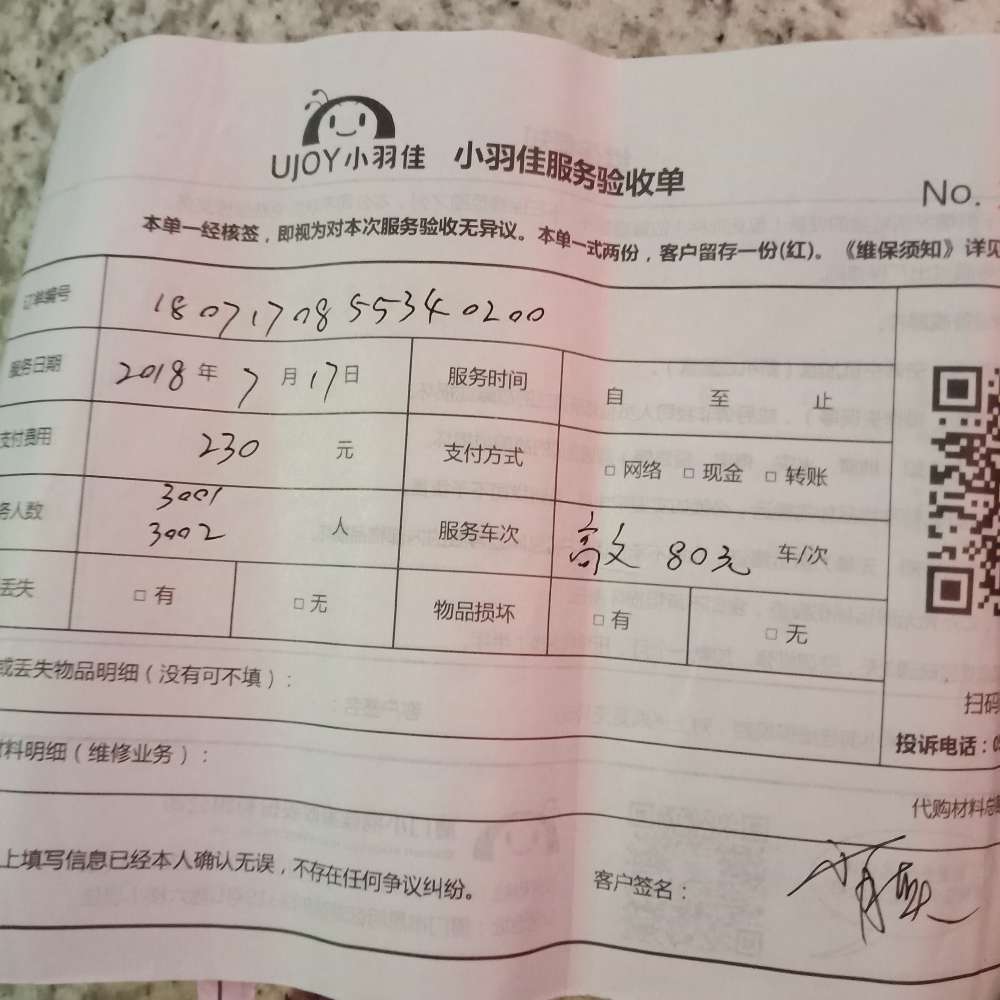 UJOY小羽佳 小羽佳服务验收单
No.
本单一经核签，即视为对本次服务验收无异议。本单一式两份，客户留存一份(红)。《维保须知》详见
订单编号 1807170855340200
服务日期 2018年7月17日 服务时间 自 至 止
支付费用 230 元 支付方式 □网络 □现金 □转账
务人数 3001 3002 人 服务车次 80元 车/次
丢失 □有 □无 物品损坏 □有 □无
或丢失物品明细（没有可不填）：
扫码
材料明细（维修业务）：
投诉电话：0
代购材料总
上填写信息已经本人确认无误，不存在任何争议纠纷。 客户签名：